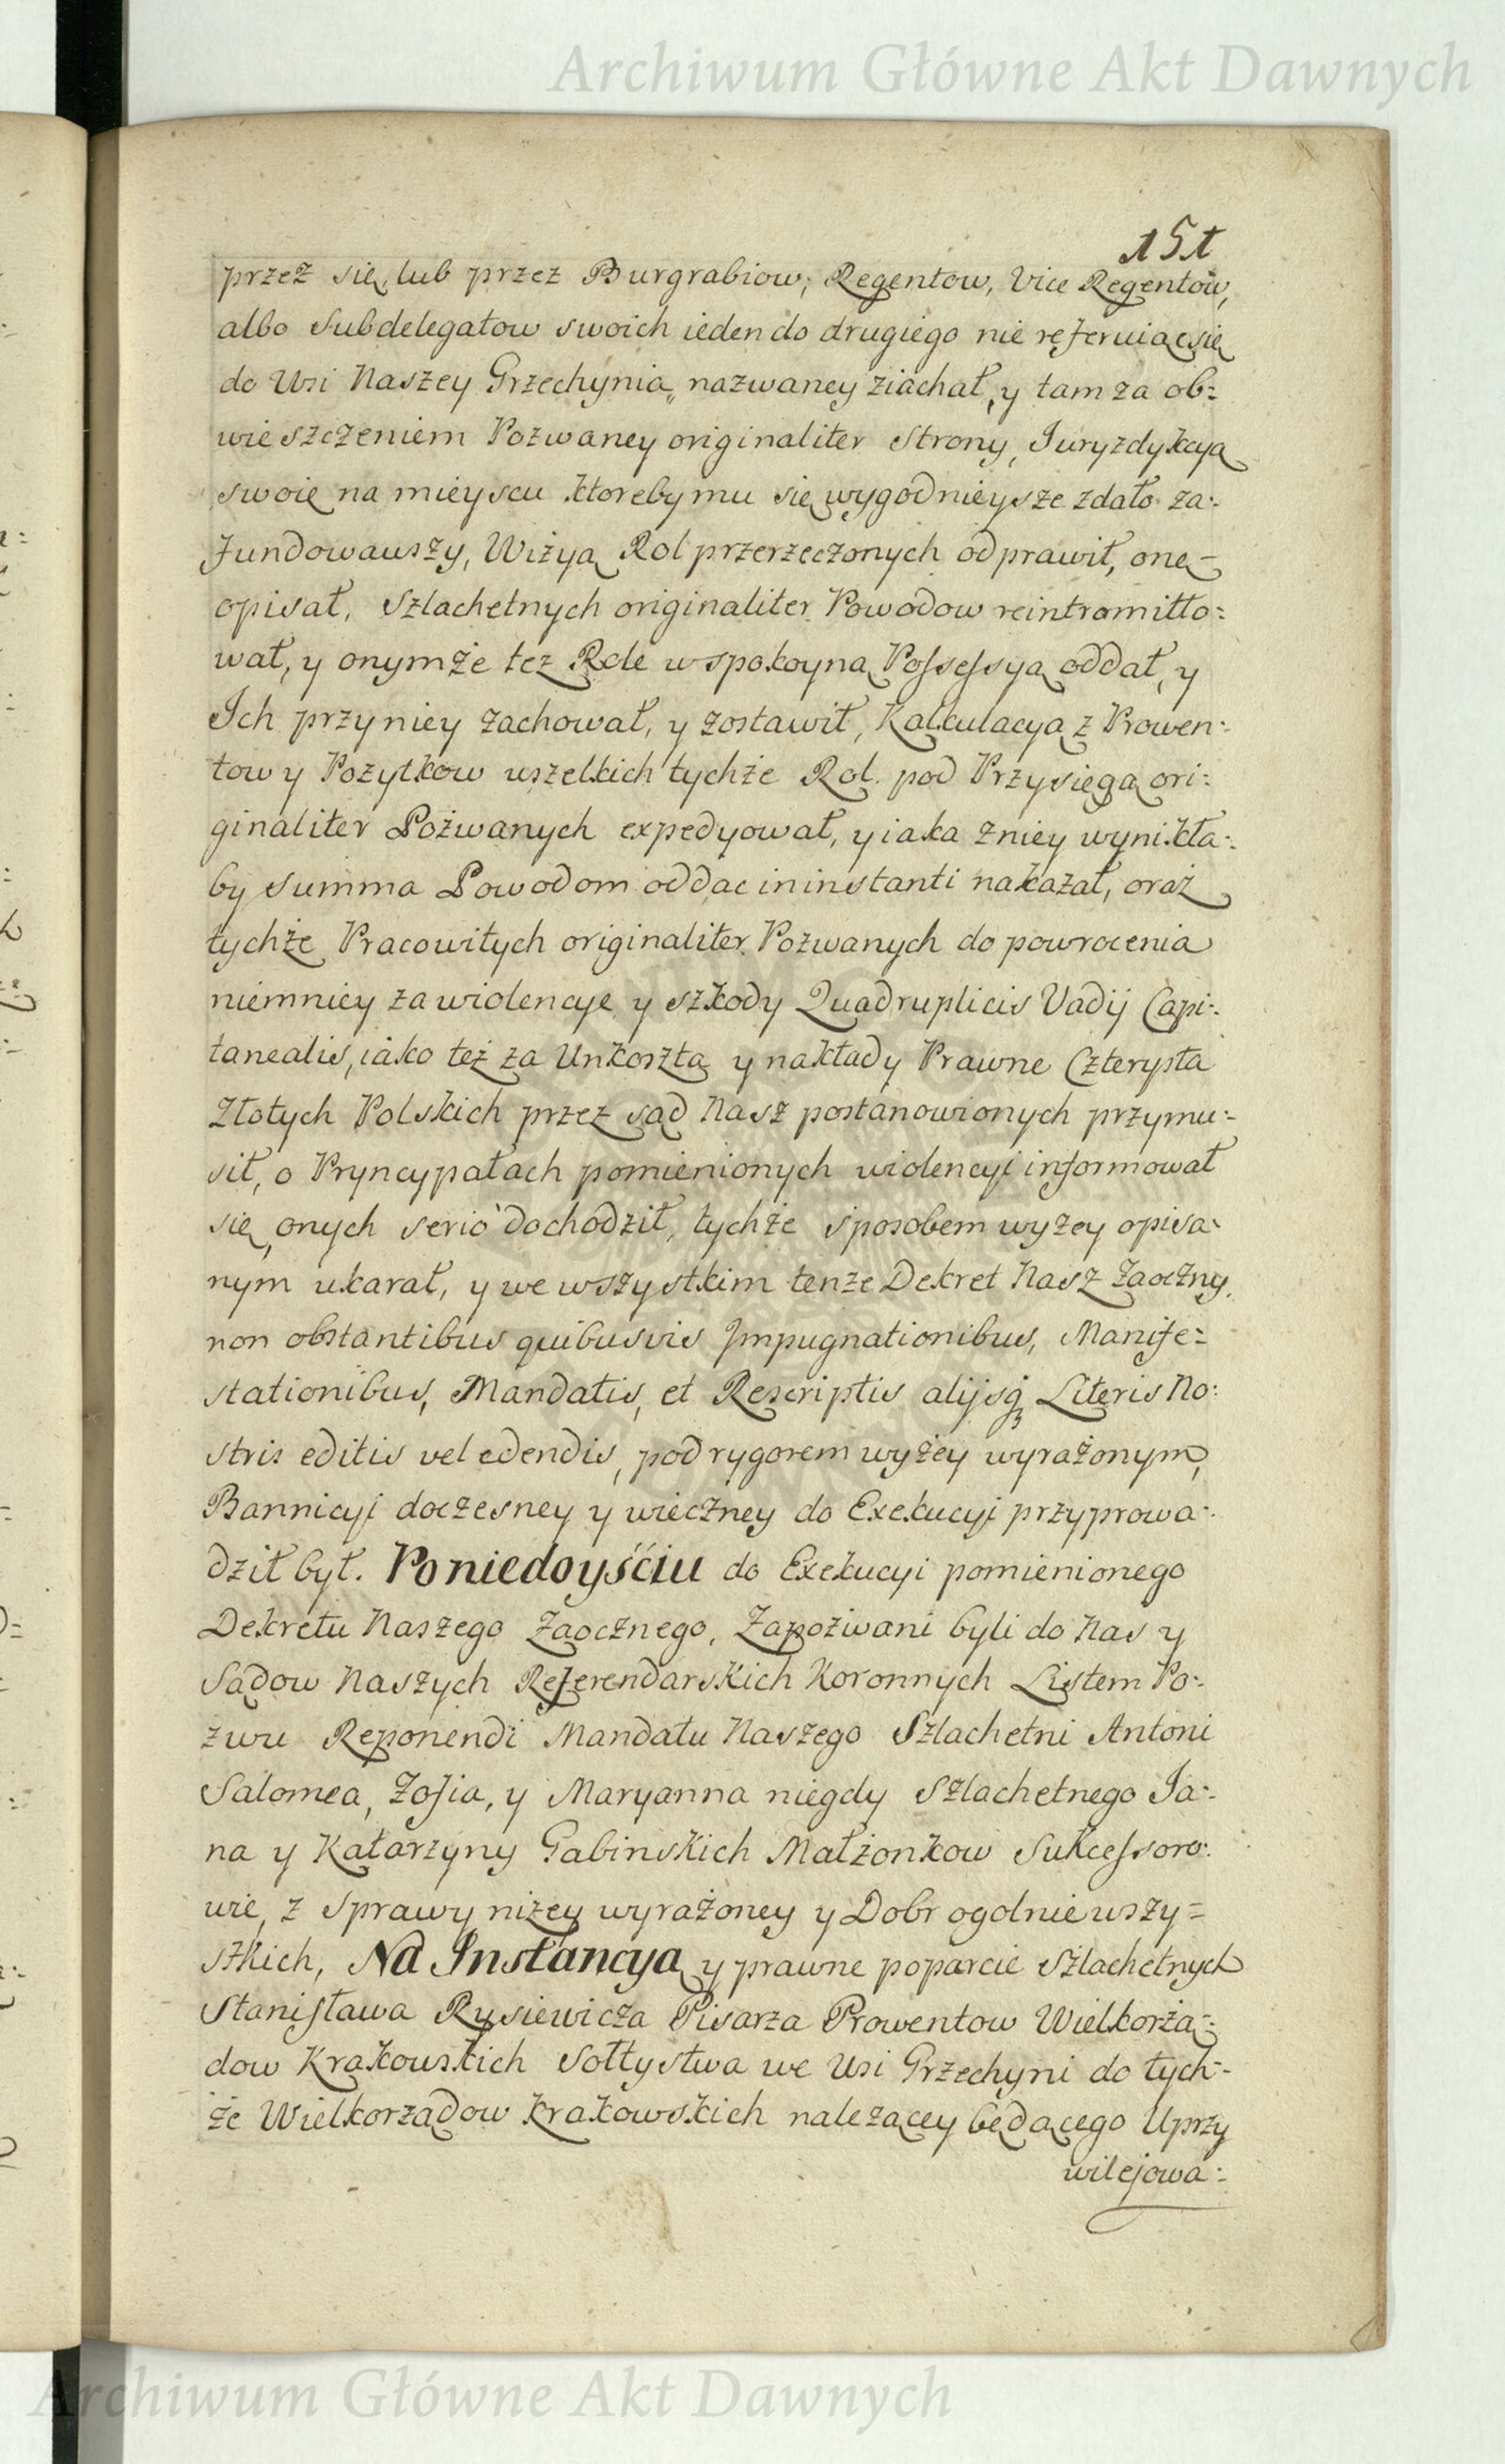 Archiwum Główne Akt Dawnych
151
przez się, lub przez Burgrabiow, Regentow, Vice Regentow,
albo Subdelegatow swoich ieden do drugiego nie referuiąc się
do Wsi Naszey Grzechynia nazwaney ziachał, y tam za ob=
wieszczeniem Pozwaney originaliter Strony, Juryzdykcyą
swoię na mieyscu ktoreby mu się wygodnieysze zdało za=
fundowawszy, Wizyą Rol przerzeczonych odprawił, onę
opisał, Szlachetnych originaliter Powodow reintromitto=
wał, y onymże też Role w spokoyną Possessyą oddał, y
Ich przy niey zachował, y zostawił, Kalkulacyą z Prowen=
tow y Pożytkow wszelkich tychże Rol pod Przysięgą ori=
ginaliter Pozwanych expedyował, y iaka z niey wynikła=
by Summa Powodom oddac in instanti nakazał, oraz
tychże Pracowitych originaliter Pozwanych do powrocenia
niemniey za wiolencye y szkody Quadruplicis Vadij Capi=
tanealis, iako też za Unkoszta y nakłady Prawne Czterysta
Złotych Polskich przez sąd Nasz postanowionych przymu=
sił, o Pryncypałach pomienionych wiolencyi informował
się, onych serio dochodził, tychże sposobem wyżey opisa=
nym ukarał, y we wszystkim tenże Dekret Nasz Zaoczny
non obstantibus quibusvis Impugnationibus, Manife=
stationibus, Mandatis, et Rescriptis alijsq Literis No=
stris editis vel edendis, pod rygorem wyżey wyrażonym,
Bannicyi doczesney y wieczney do Exekucyi przyprowa=
dził był. Poniedoyściu do Exekucyi pomienionego
Dekretu Naszego Zaocznego, Zapozwani byli do Nas y
Sądow Naszych Referendarskich Koronnych Listem Po=
zwu Reponendi Mandatu Naszego Szlachetni Antoni
Salomea, Zofia, y Maryanna niegdy Szlachetnego Ja=
na y Katarzyny Gabinskich Małżonkow Sukcessoro=
wie, z Sprawy niżey wyrażoney y Dobr ogolnie wszy=
stkich, Na Instancyą y prawne poparcie Szlachetnych
Stanisława Rysiewicza Pisarza Prowentow Wielkorżą=
dow Krakowskich Sołtystwa we Wsi Grzechyni do tych=
że Wielkorządow Krakowskich należącey będącego Uprzy
wilejowa=
Archiwum Główne Akt Dawnych